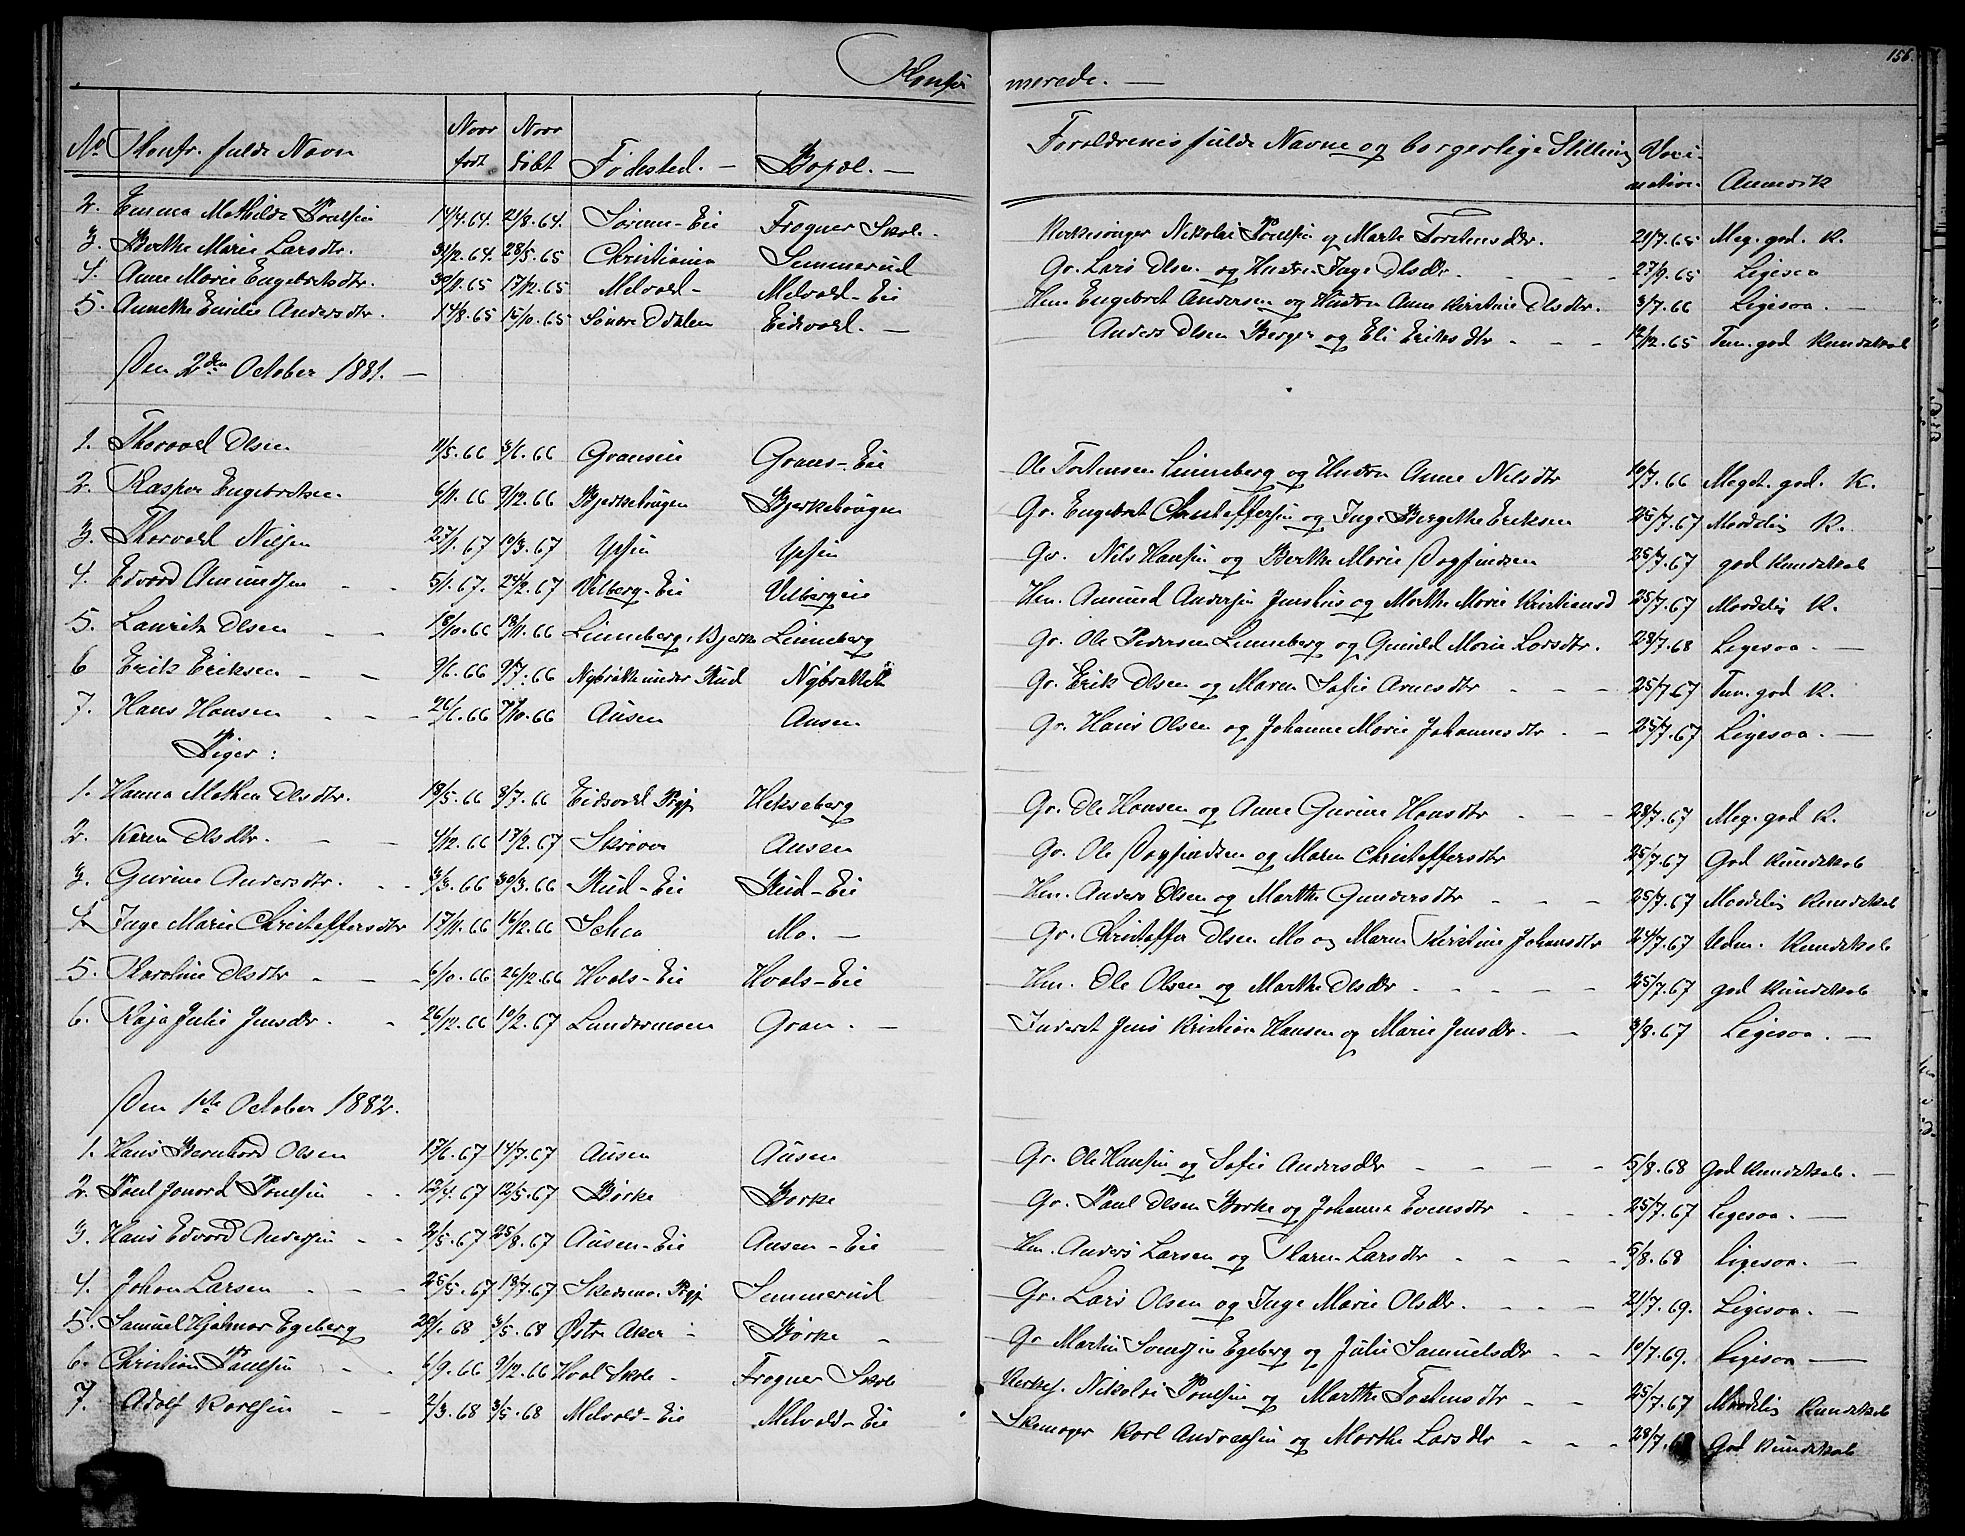 156.
Konfir merede. —
No Konfr. fulde Navn Naar født Naar døbt Fødested. — Bopæl. — Forældrenes fulde Navne og borgerlige Stilling Vaccination Anmærk
2. Emma Mathilde Poulsen 14/4.64. 21/8.64. Sørum-Eie Frogner Skole. Kirkesanger Nikolai Poulsen og Marte Torstensdtr. 21/7.65 Meg. god. K.
3. Berthe Marie Larsdtr. 31/12.64. 28/5.65 Christiania Semmerud Gr. Lars Olsen og Hustru Inge Olsdtr. - - - 27/9.65 Ligesaa
4. Anne Marie Engebretsdtr. 30/11.65 17/12.65 Melvold- Melvold-Eie Hm Engebret Andersen og Hustru Anne Kirstine Olsdtr. 3/7.66 Ligesaa. —
5. Annette Emilie Andersdtr. 14/8.65 15/10.65 Søndre Odalen Eidsvold. — Anders Olsen Berger og Eli Eriksdtr - - - 17/12.65 Tem. god Kundskab
Den 2den October 1881. —
1. Thorvald Olsen 11/5.66 3/6.66 Granseie Grans-Eie Ole Torstensen Linneberg og Hustru Anne Nilsdtr 10/7.66 Meget. god. K.
2. Kasper Engebretsen. 6/11.66 9/12.66 Bjerkehougen Bjerkehougen Gr. Engebret Christoffersen og Inge Bergethe Eriksen 25/7.67 Maadelig K.
3. Thorvald Nilsen 27/1.67 10/3.67 Ihsin Ihsin Gr. Nils Hansen og Berthe Marie Dagfindsen 25/7.67 god Kundskab
4. Edvard Amundsen - - 5/1.67. 24/2.67 Vilberg-Eie Vilbergeie Hm. Amund Andersen og Marthe Marie Kristiansd 25/7.67 Maadelig K.
5. Lauritz Olsen - - 18/10.66 18/11.66 Linneberg, Bjerke Linneberg Gr. Ole Pedersen Linneberg og Gunild Marie Larsdtr. 28/7.68 Ligesaa. —
6 Erik Eriksen - - 9/6.66 9/7.66 Nybrått under Rud Nybråttet Gr. Erik Olsen og Maren Sofie Arnesdtr - - - 25/7.67 Tem. god K.
7. Hans Hansen - - - 26/6.66 7/10.66 Ausen Ausen Gr. Hans Olsen og Johanne Marie Johannesdtr - - 25/7.67 Ligesaa. —
Piger:
1. Hanna Mathea Olsdtr. 18/5.66 8/7.66 Eidsvold Prgj Hekseberg Gr. Ole Hansen og Anne Gurine Hansdtr - - - 28/7.67 Meg. god K.
2. Karen Olsdtr. - - 4/12.66 17/2.67 Skrivra Ausen Gr. Ole Dagfindsen og Maren Christoffersdtr 25/7.67 God Kundskab
3. Gurine Andersdtr. - - 3/3.66 30/3.66 Rud-Eie Rud-Eie Hm. Anders Olsen og Marthe Gundersdtr - - - 25/7.67 Maadelig Kundskab
4. Inge Marie Christoffersdtr 17/11.66 16/12.66 Schea Mo. — Gr. Christoffer Olsen Mo og Maren Kirstine Johansdtr 24/7.67 Udm. Kundskab
5. Karoline Olsdtr - - - 6/10.66 26/12.66 Hvals-Eie Hvals-Eie Hm. Ole Olsen og Marthe Olsdtr - - - - - 25/7.67 god Kundskab
6. Kaja Julie Jensdtr. - 26/12.66 10/2.67 Landermoen Gran. — Inderst Jens Kristian Hansen og Marie Jensdtr. - - 3/8.67 Ligesaa. —
Den 1ste October 1882.
1. Hans Bernhard Olsen 17/6.67 14/7.67 Ausen Ausen Gr. Ole Hansen og Sofie Andersdtr - - - - 5/8.68 God Kundskab. —
2. Poul Jonard Poulsen - - 12/4.67 12/5.67 Børke Børke Gr. Paul Olsen Børke og Johanne Evensdtr - - - 25/7.67 Ligesaa. —
3. Hans Edvard Andersen - - 2/5.67 25/8.67 Ausen-Eie Ausen-Eie Hm. Anders Larsen og Karen Larsdtr - - - - 5/8.68 Ligesaa. —
4. Johan Larsen - - - 25/5.67 18/7.67 Skedsmo Prgj Semmerud Gr. Lars Olsen og Inge Marie Olsdtr. - - - - 21/7.69. Ligesaa. —
5. Samuel Hjalmar Egeberg 20/1.68 3/5.68 Østre Aker - Børke - Gr Martin Svendsen Egeberg og Julie Samuelsdtr - - 10/7.69. Ligesaa —
6. Christian Poulsen - - 6/9.66 9/12.66 Hval Skole - Frogner Skole Kirkes. Nikolai Poulsen og Marthe Torstensdtr - - 25/7.67 Maadelig Kundskab
7. Adolf Karlsen - - 2/3.68 3/5.68 Melvold-Eie Melvold-Eie Skomager Karl Andreassen og Marthe Larsdtr - - - 28/7.68 God Kundskab